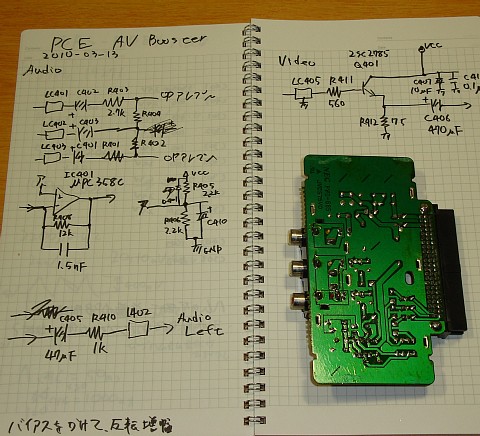 PCE AV Booster
2010-03-13
Audio
LC401 C402 R403
2.7k
OPアンプへ
R404
LC402 C403
R402
LC403 C401 R401
OPアンプへ
IC401
μPC358C
R408
12k
1.5nF
VCC
R405
2.2k
R406
2.2k
C410
GND
C405 R410 L402
47μF 1k
Audio
Left
バイアスをかけて、反転増幅
Video
2SC2785
Q401
VCC
LC405 R411
560
C407
10μF
0.1μ
C406
470μF
R412 75